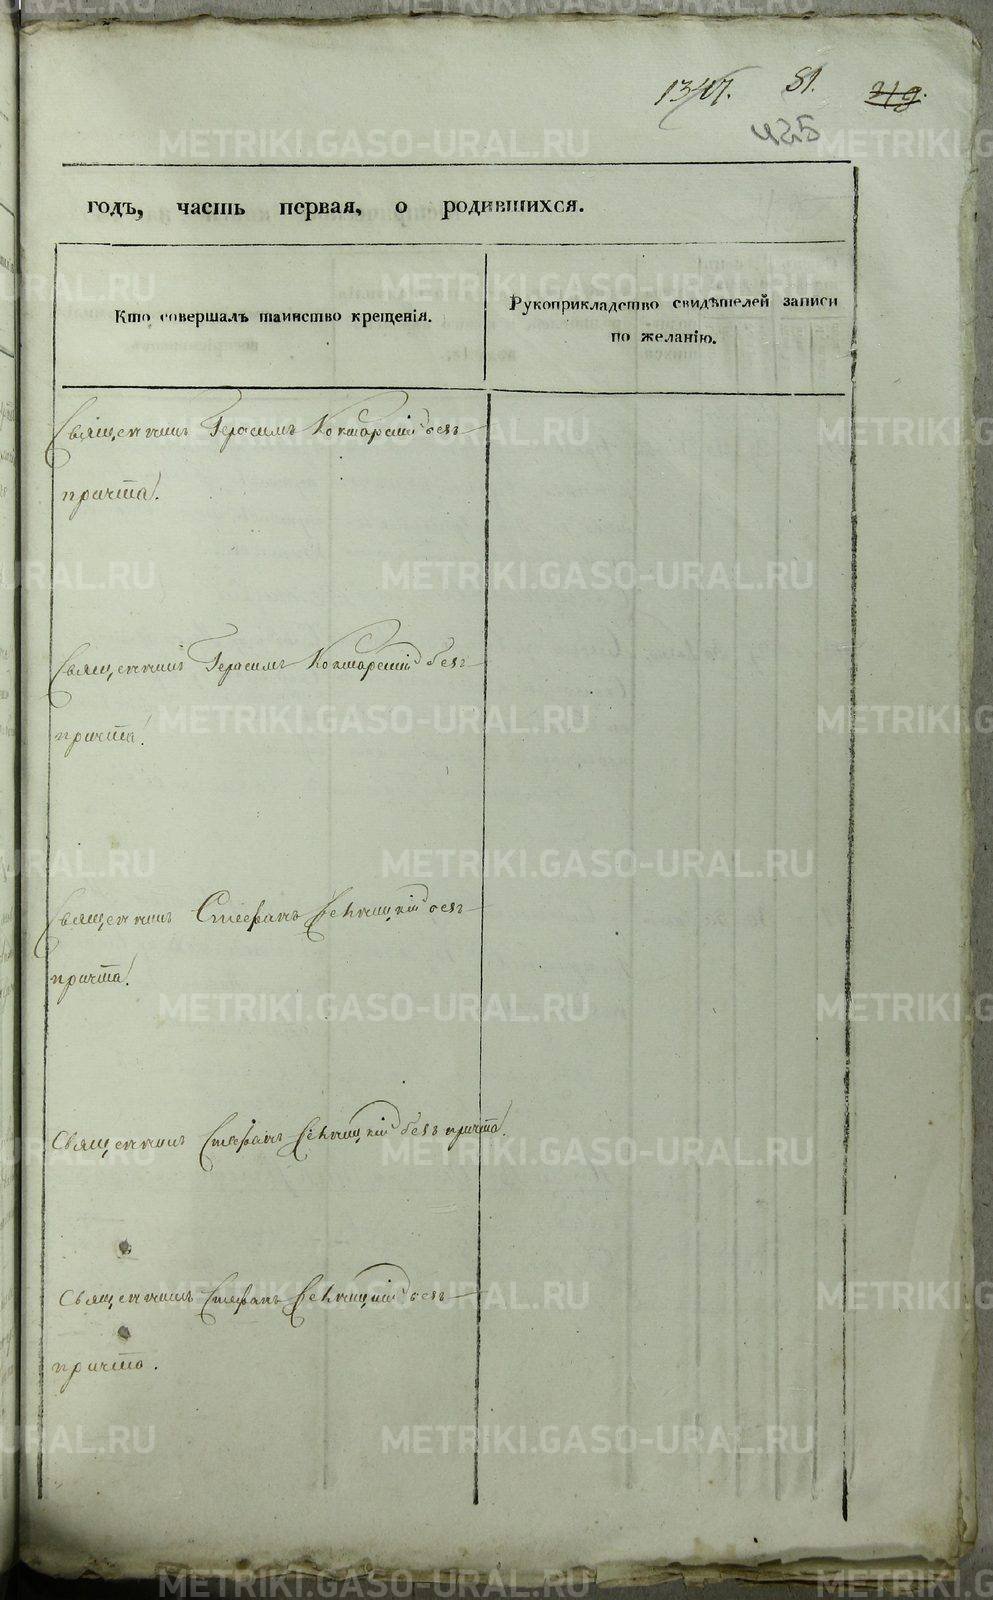 1347. 81. 319.
425
годъ, часть первая, о родившихся.
Кто совершалъ таинство крещенія.
Рукоприкладство свидѣтелей записи
по желанію.
Священникъ Герасимъ Кокшарскій безъ
причта.
Священникъ Герасимъ Кокшарскій безъ
причта.
Священникъ Стефанъ безъ
причта.
Священникъ Стефанъ безъ причта.
Священникъ Стефанъ безъ
причта.
METRIKI.GASO-URAL.RU